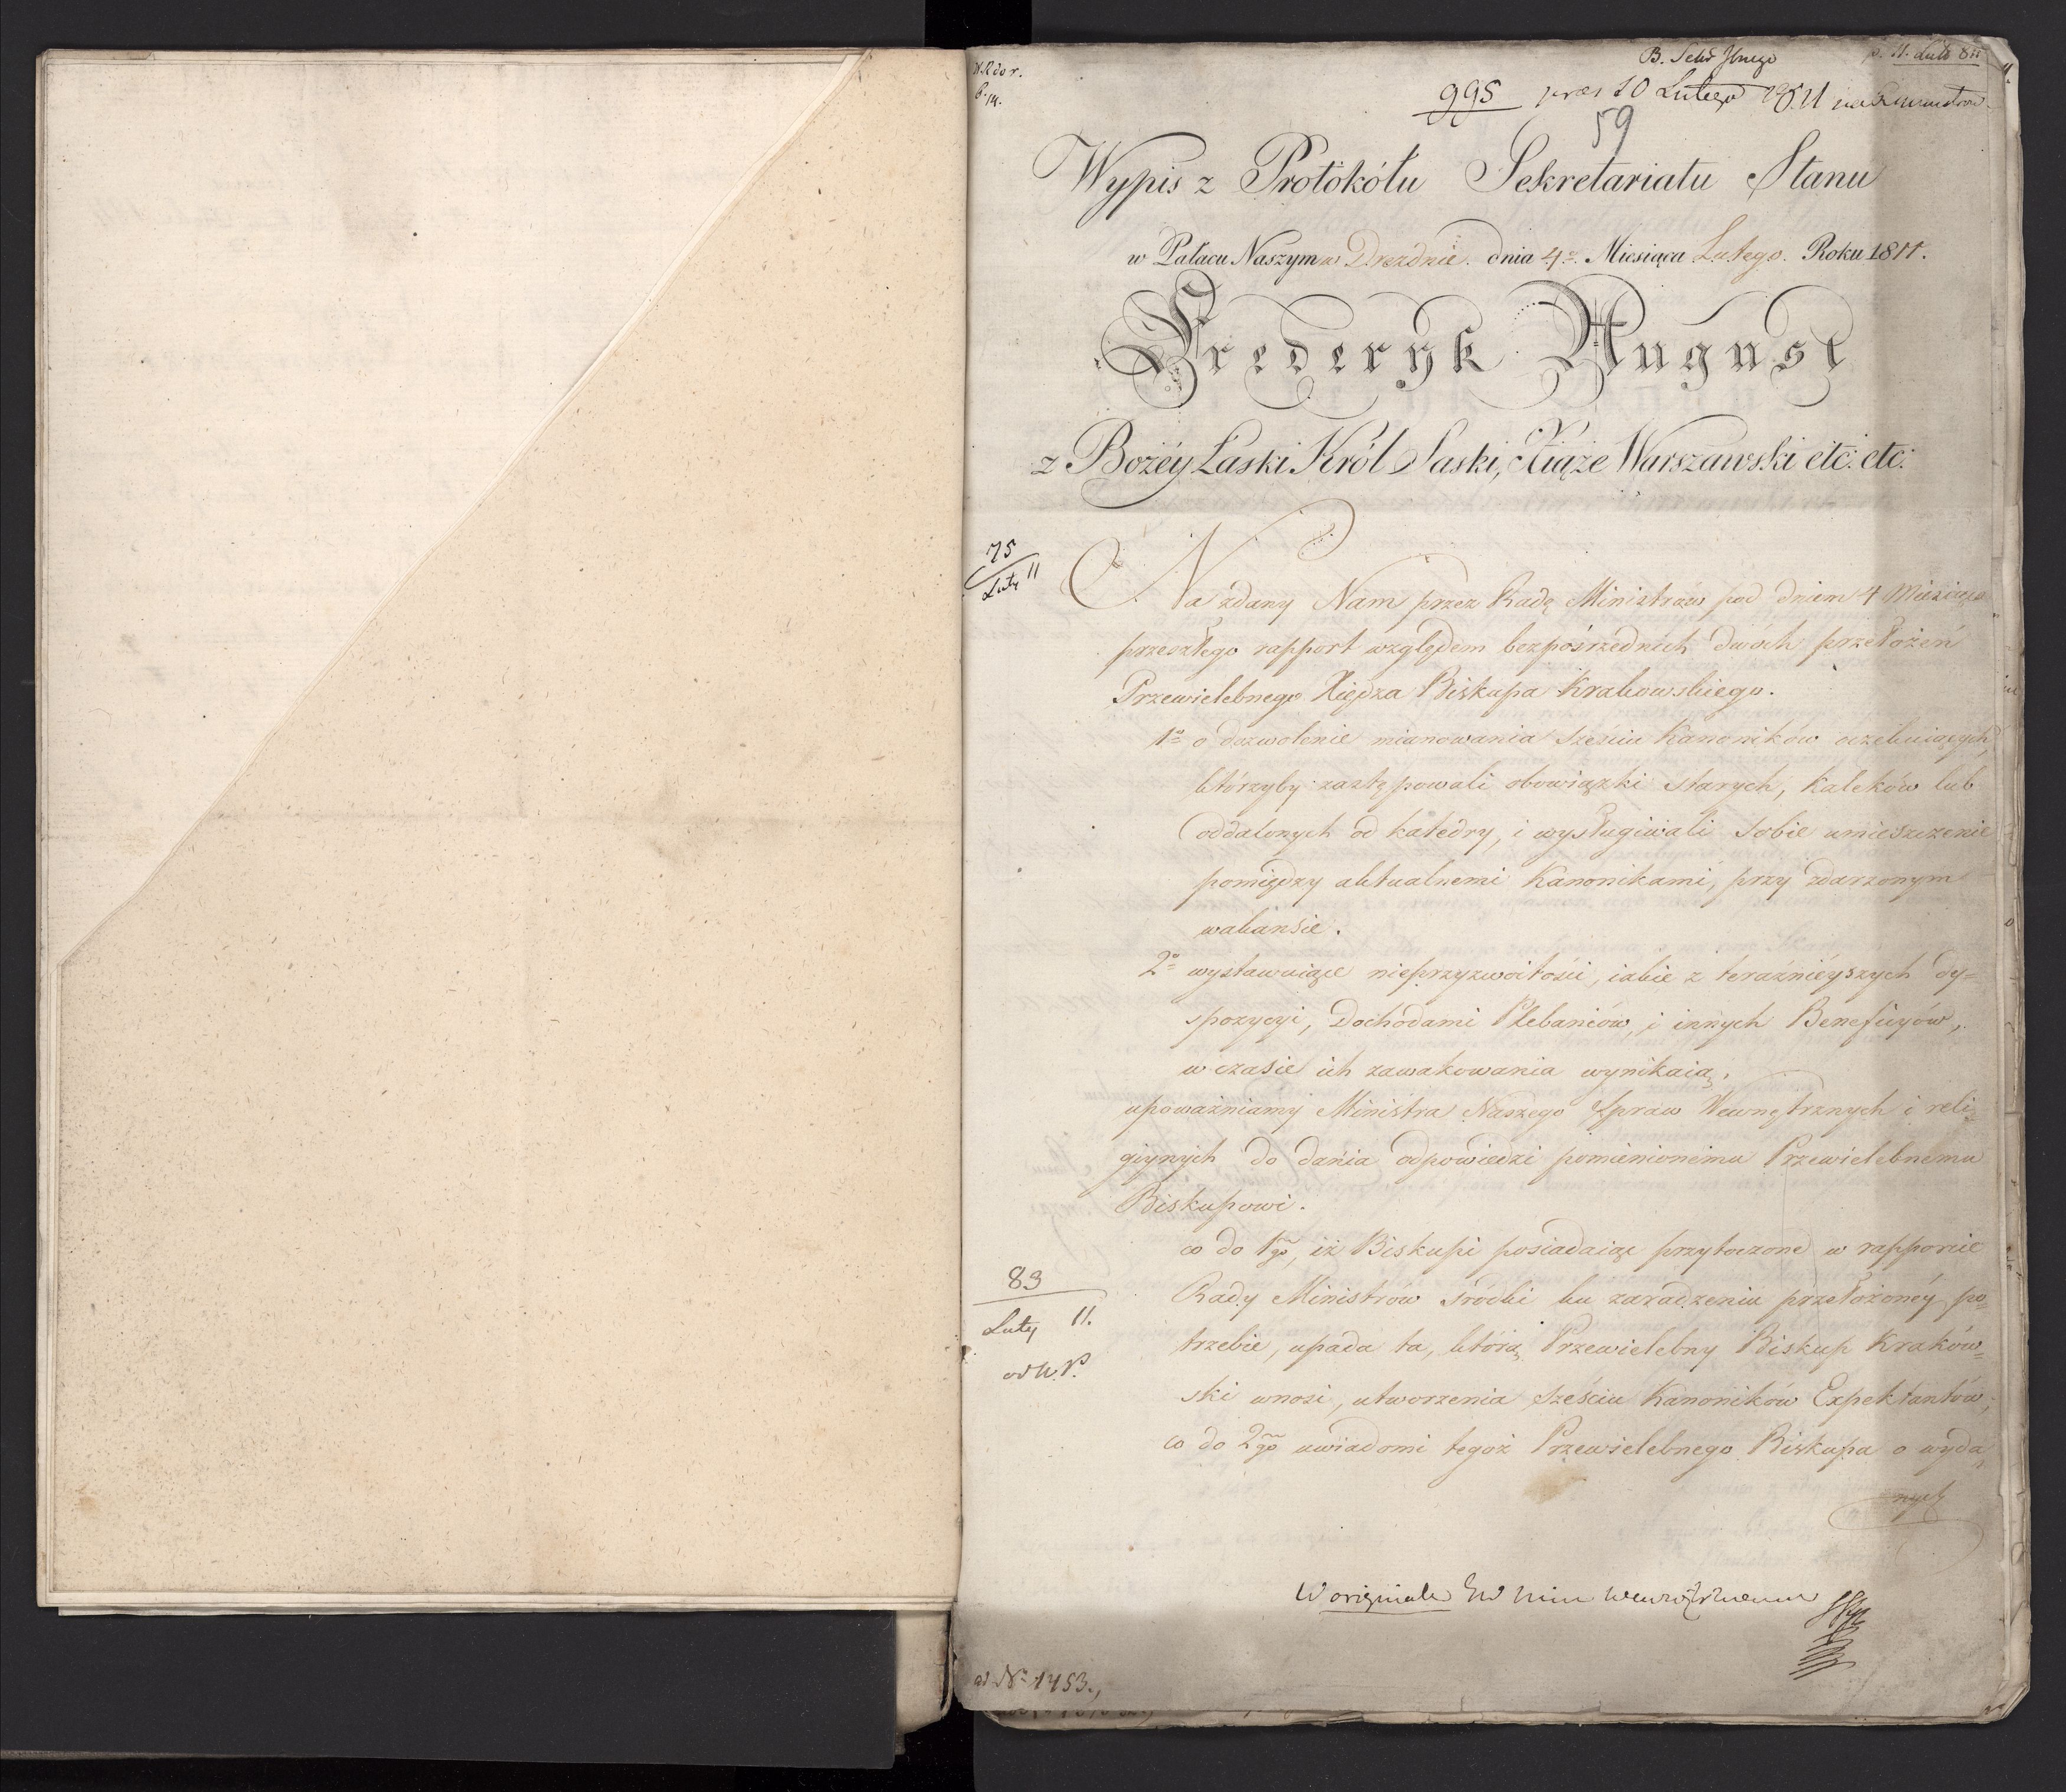 B. Sekr Jlnego
p. 11. Luto 811
995 præs 10 Lutego 1811
59
Wypis z Protokółu Sekretariatu Stanu
w Pałacu Naszym w Dreźdnie. dnia 4º. Miesiąca Lutego. Roku 1811.
Frederyk August
z Bożéy Łaski Król Saski, Xiąże Warszawski etc: etc:
75
Luty 11
Na zdany Nam przez Radę Ministrów pod dniem 4 Miesiąca
przeszłego rapport względem bezpośrzednich dwóch przełożeń
Przewielebnego Xiędza Biskupa Krakowskiego.
1º o dozwolenie mianowania sześciu Kanoników oczekuiących,
którzyby zastępowali obowiązki starych, kaleków lub
oddalonych od katedry, i wysługiwali sobie umieszczenie
pomiędzy aktualnemi Kanonikami, przy zdarzonym
wakansie.
2º wystawuiące nieprzyzwoitości, iakie z teraźnieyszych dy=
spozycyi, Dochodami Plebaniów, i innych Beneficyów,
w czasie ich zawakowania wynikaią,
upoważniamy Ministra Naszego Spraw Wewnętrznych i reli=
giynych do dania odpowiedzi pomienionemu Przewielebnemu
Biskupowi.
co do 1go, iż Biskupi posiadaiąc przytoczone w rapporcie
Rady Ministrów śródki ku zaradzeniu przełożonéy po=
trzebie, upada ta, którą Przewielebny Biskup Krakow=
ski wnosi, utworzenia sześciu Kanoników Expektantów,
co do 2go uwiadomi tegoż Przewielebnego Biskupa o wyda=
nych
83
Luty 11.
W originale
ad Nº 1453.,